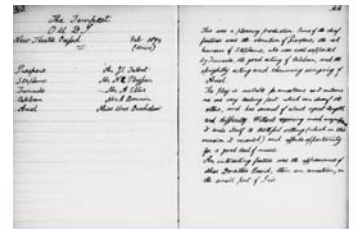 The Tempest
O.U.D.S.
New Theatre Oxford Feb 1894
(twice)
Prospero Mr.
Stephano Mr. H.R.
Trinculo Mr. A. Ellis
Caliban Mr. R.
Ariel Miss
44
This was a pleasing production. Some of the chief
features was the of Prospero, the rich
humour of Stephano, who was well supported
by Trinculo, the good acting of Caliban, and the
sprightly acting and charming singing of
Ariel.
The play is suitable for amateurs as it contains
no one very leading part which can dwarf the
others, and has several of about equal length
and difficulty. Without requiring much
it lends itself to tasteful setting (which on this
occasion it received) and affords opportunity
for a good deal of music.
An interesting feature was the appearance of
Miss Dorothea Baird, then an amateur, in
the small part of Iris.